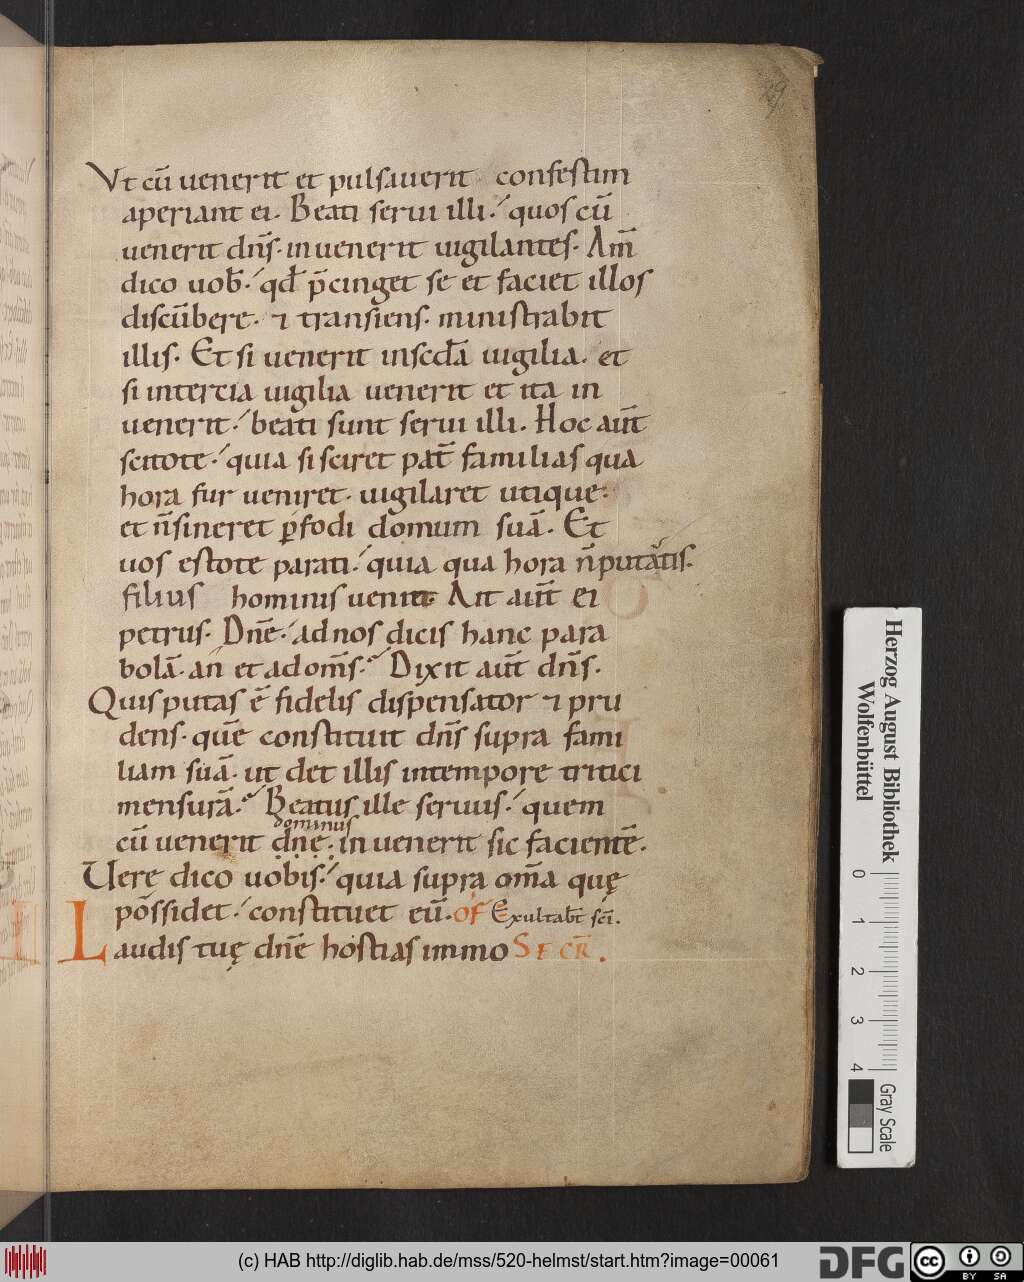 29
Vt cū uenerit et pulsauerit confestim
aperiant ei. Beati serui illi. quos cū
uenerit dn̄s. inuenerit uigilantes. Am̄
dico uob̄. qd̄ p̄cinget se et faciet illos
discūbere. ⁊ transiens. ministrabit
illis. Et si uenerit inscd̄a uigilia. et
si intercia uigilia uenerit et ita in
uenerit. beati sunt serui illi. Hoc aūt
scitote. quia si sciret pat̄ familias qua
hora fur ueniret. uigilaret utique.
et n̄ sineret ꝑfodi domum suā. Et
uos estote parati. quia qua hora n̄ putatis.
filius hominis uenit. Ait aūt ei
petrus. Dn̄e. ad nos dicis hanc para
bolā. an et adom̄s. Dixit aūt dn̄s.
Quis putas ē fidelis dispensator ⁊ pru
dens. quē constituit dn̄s supra fami
liam suā. ut det illis intempore tritici
mensurā. Beatus ille seruus. quem
dominus
cū uenerit dn̄e. inuenerit sic facientē.
Uere dico uobis. quia supra om̄a quę
possidet. constituet eū. of Exultab̄t sc̄i.
Laudis tuę dn̄e hostias immo SECR̄.
Herzog August Bibliothek
Wolfenbüttel
0 1 2 3 4
Gray Scale
(c) HAB http://diglib.hab.de/mss/520-helmst/start.htm?image=00061
DFG
cc BY SA